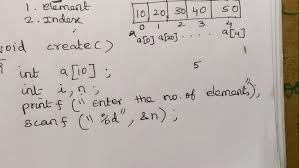 1. Element
2. Index
10 20 30 40 50
0 1 2 3 4
a a[0] a[20] ..... a[4]
void create()
{ int a[10] ; 5
int i, n ;
printf ("Enter the no. of elements"),
scanf ("%d", &n) ;